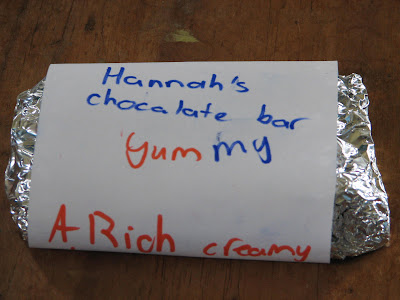 Hannah's
chocalate bar
yummy
A Rich creamy